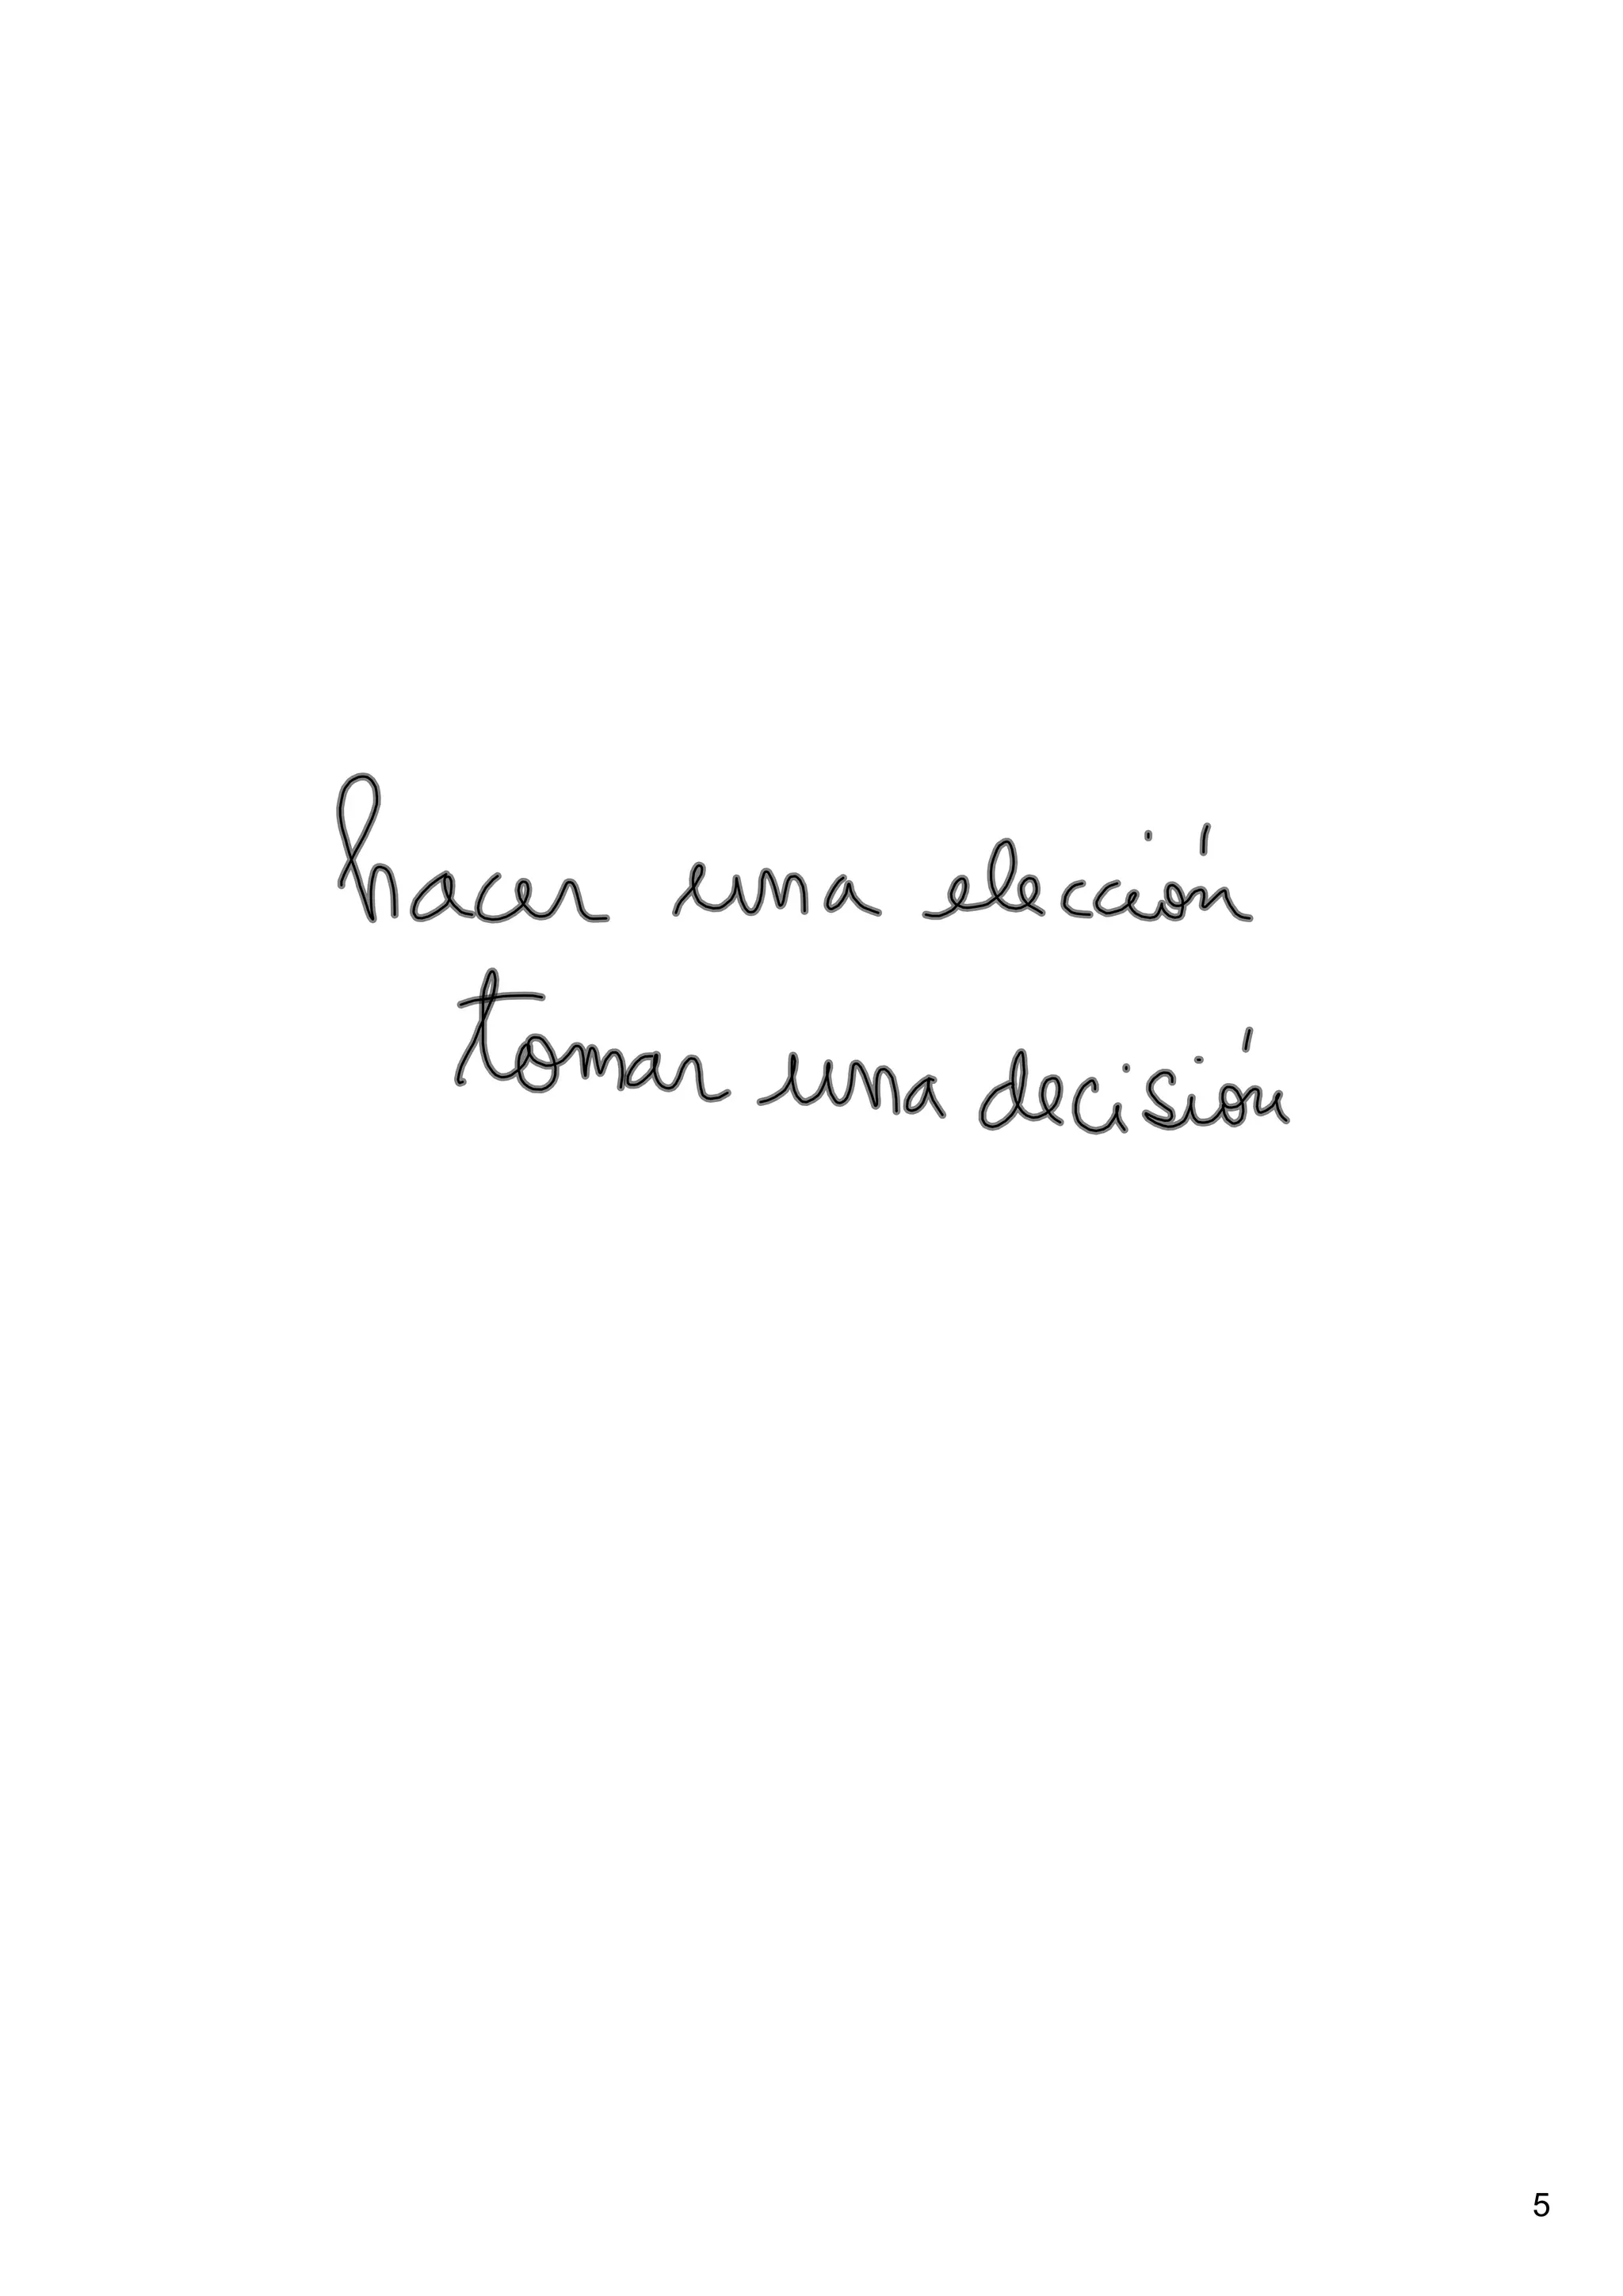 hacer una elección
tomar una decisión
5